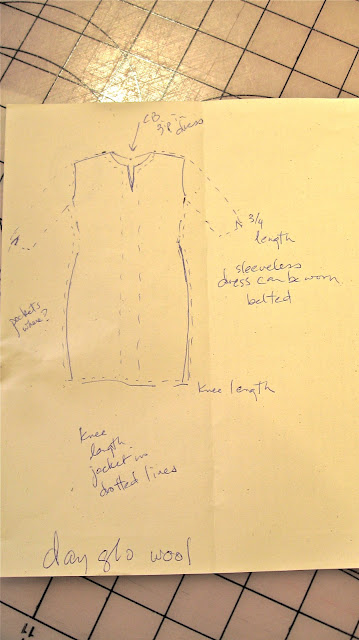 CB
zip in
dress
3/4
length
sleeveless
dress can be worn
belted
pockets
where?
knee length
knee
length
jacket in
dotted lines
day glo wool